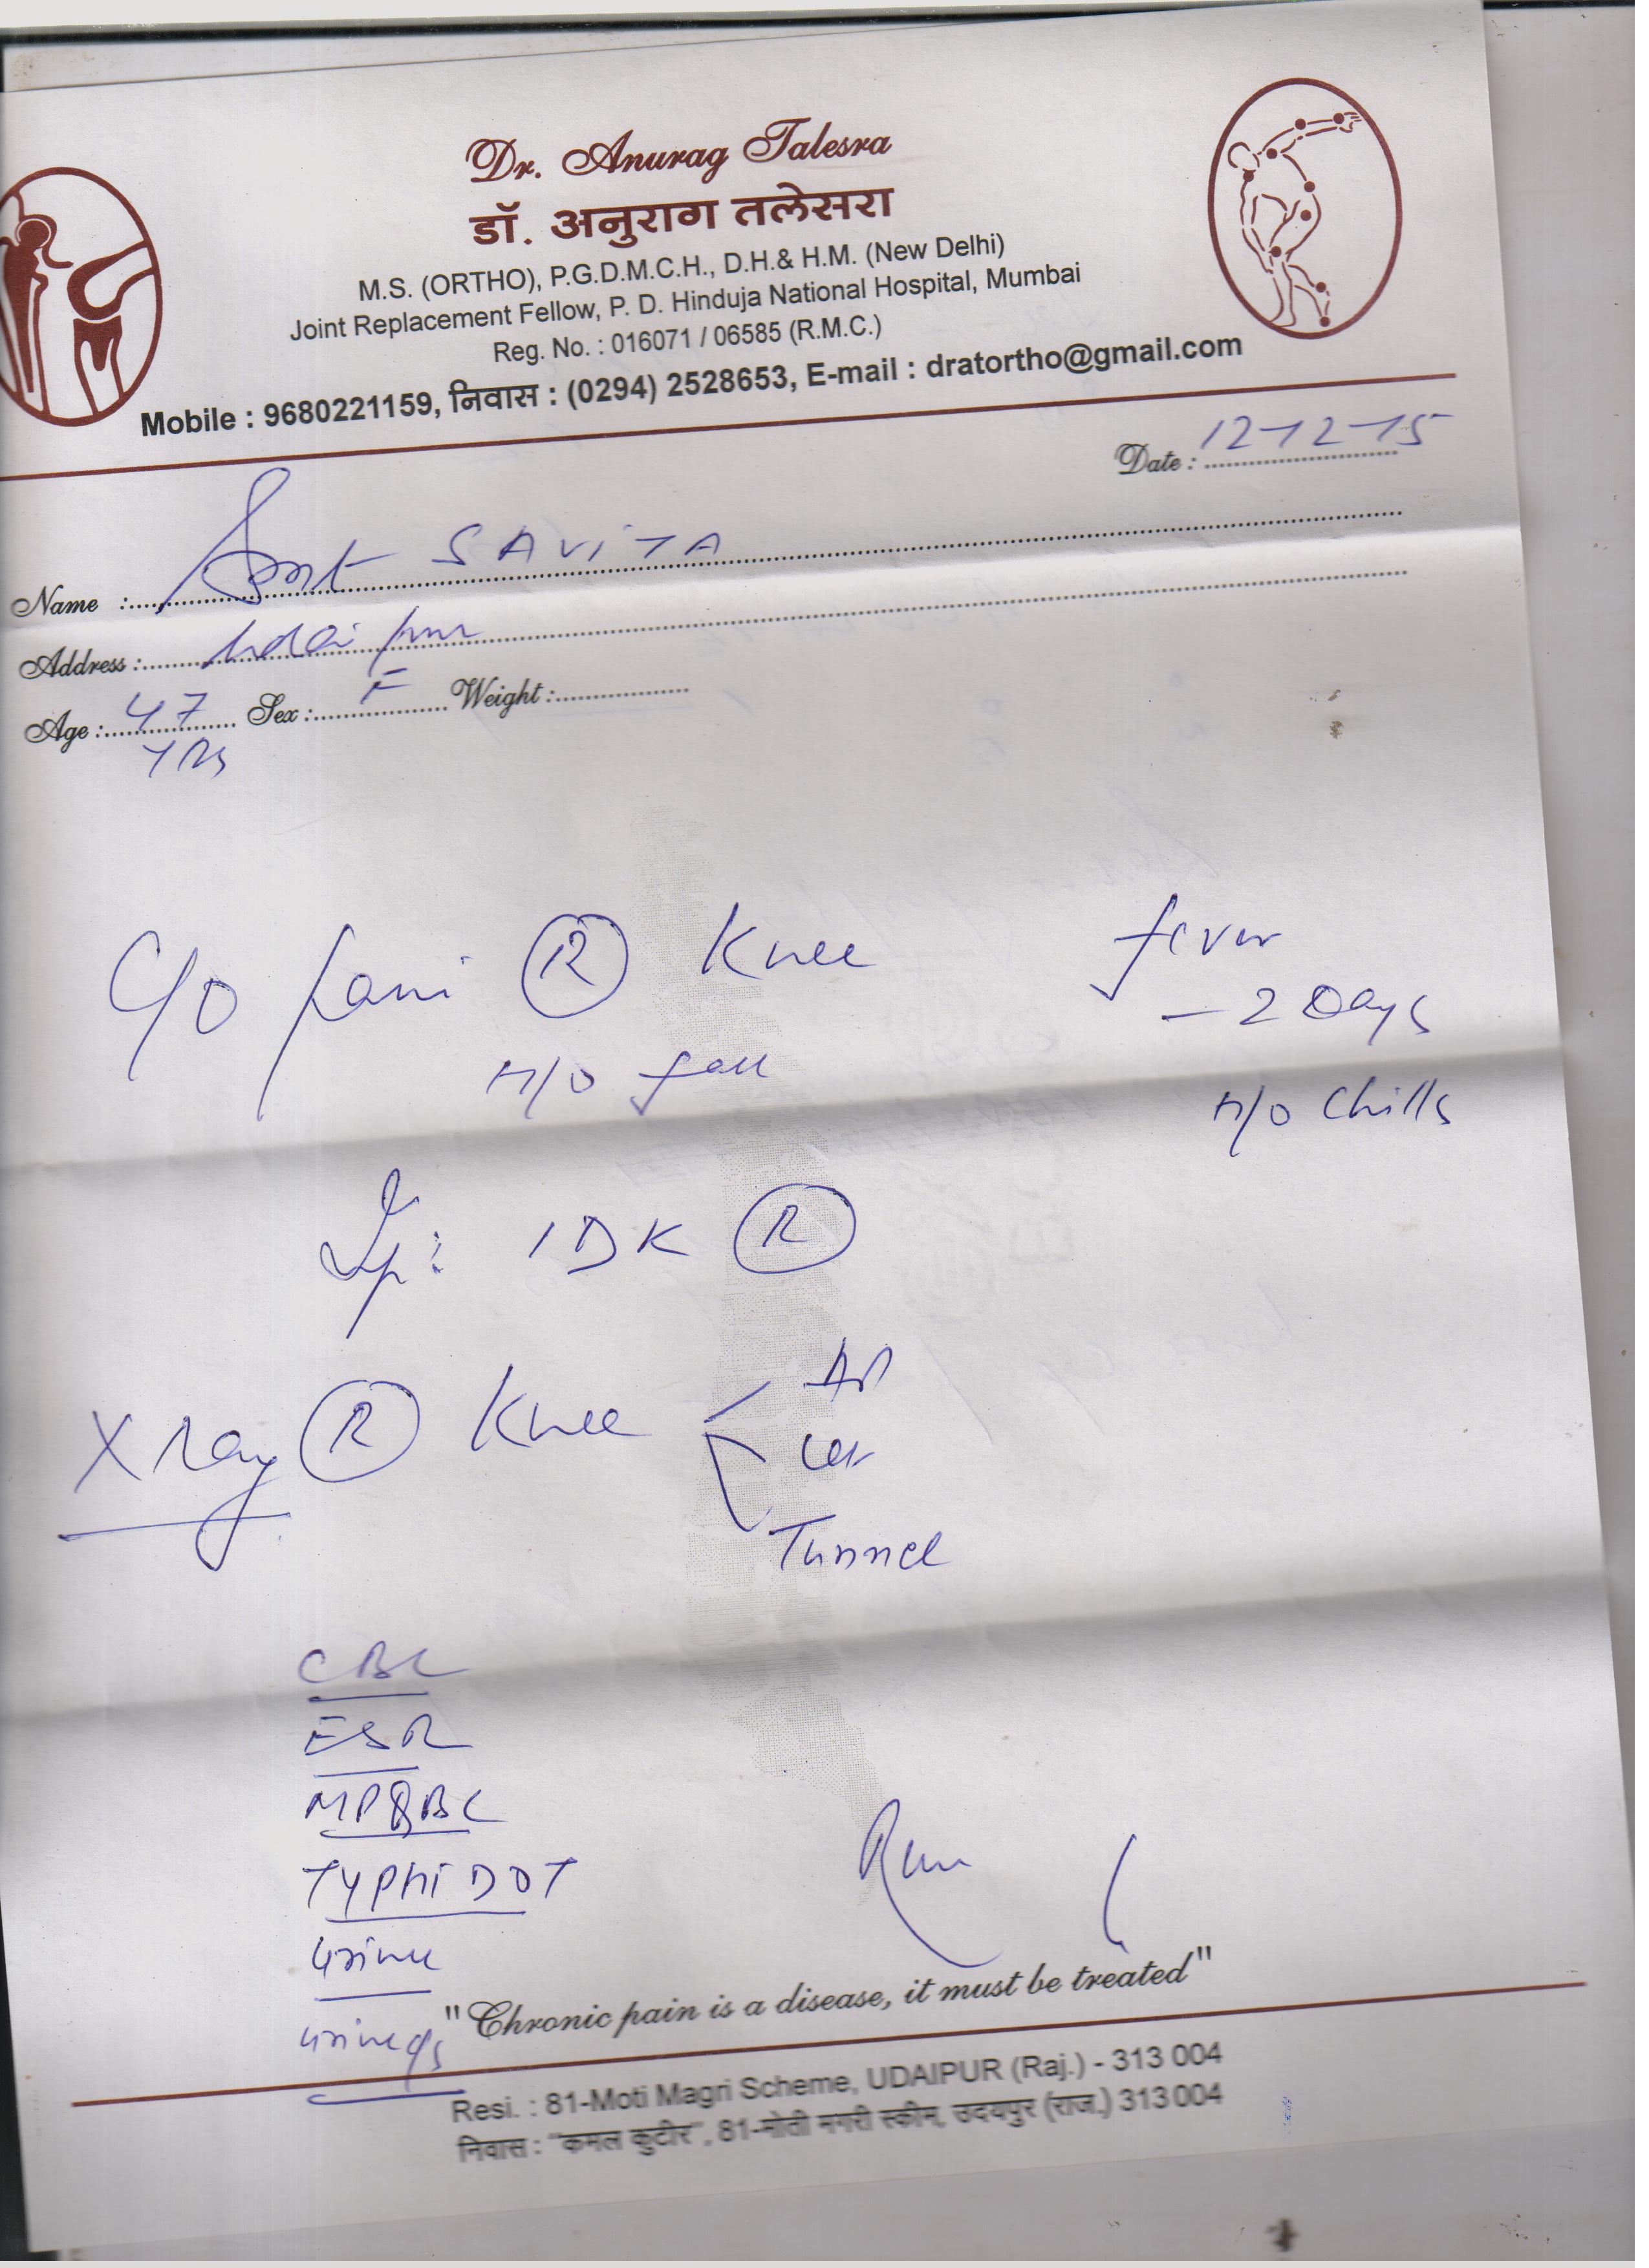 Dr. Anurag Talesra
डॉ. अनुराग तलेसरा
M.S. (ORTHO), P.G.D.M.C.H., D.H.& H.M. (New Delhi)
Joint Replacement Fellow, P. D. Hinduja National Hospital, Mumbai
Reg. No. : 016071 / 06585 (R.M.C.)
Mobile : 9680221159, निवास : (0294) 2528653, E-mail : dratortho@gmail.com
Date : 12-12-15
Name : Smt SAVITA
Address : Udaipur
Age : 47 Sex : F Weight :
YRS
C/O pain R Knee
H/O fall
fever
- 2 Days
H/O Chills
Imp: IDK R
X Ray R Knee
AP
Lat
Tunnel
CBC
ESR
MPQBC
TYPHI DOT
Urine
Urine
"Chronic pain is a disease, it must be treated"
Resi. : 81-Moti Magri Scheme, UDAIPUR (Raj.) - 313 004
निवास : "कमल कुटीर", 81-मोती मगरी स्कीम, उदयपुर (राज.) 313 004